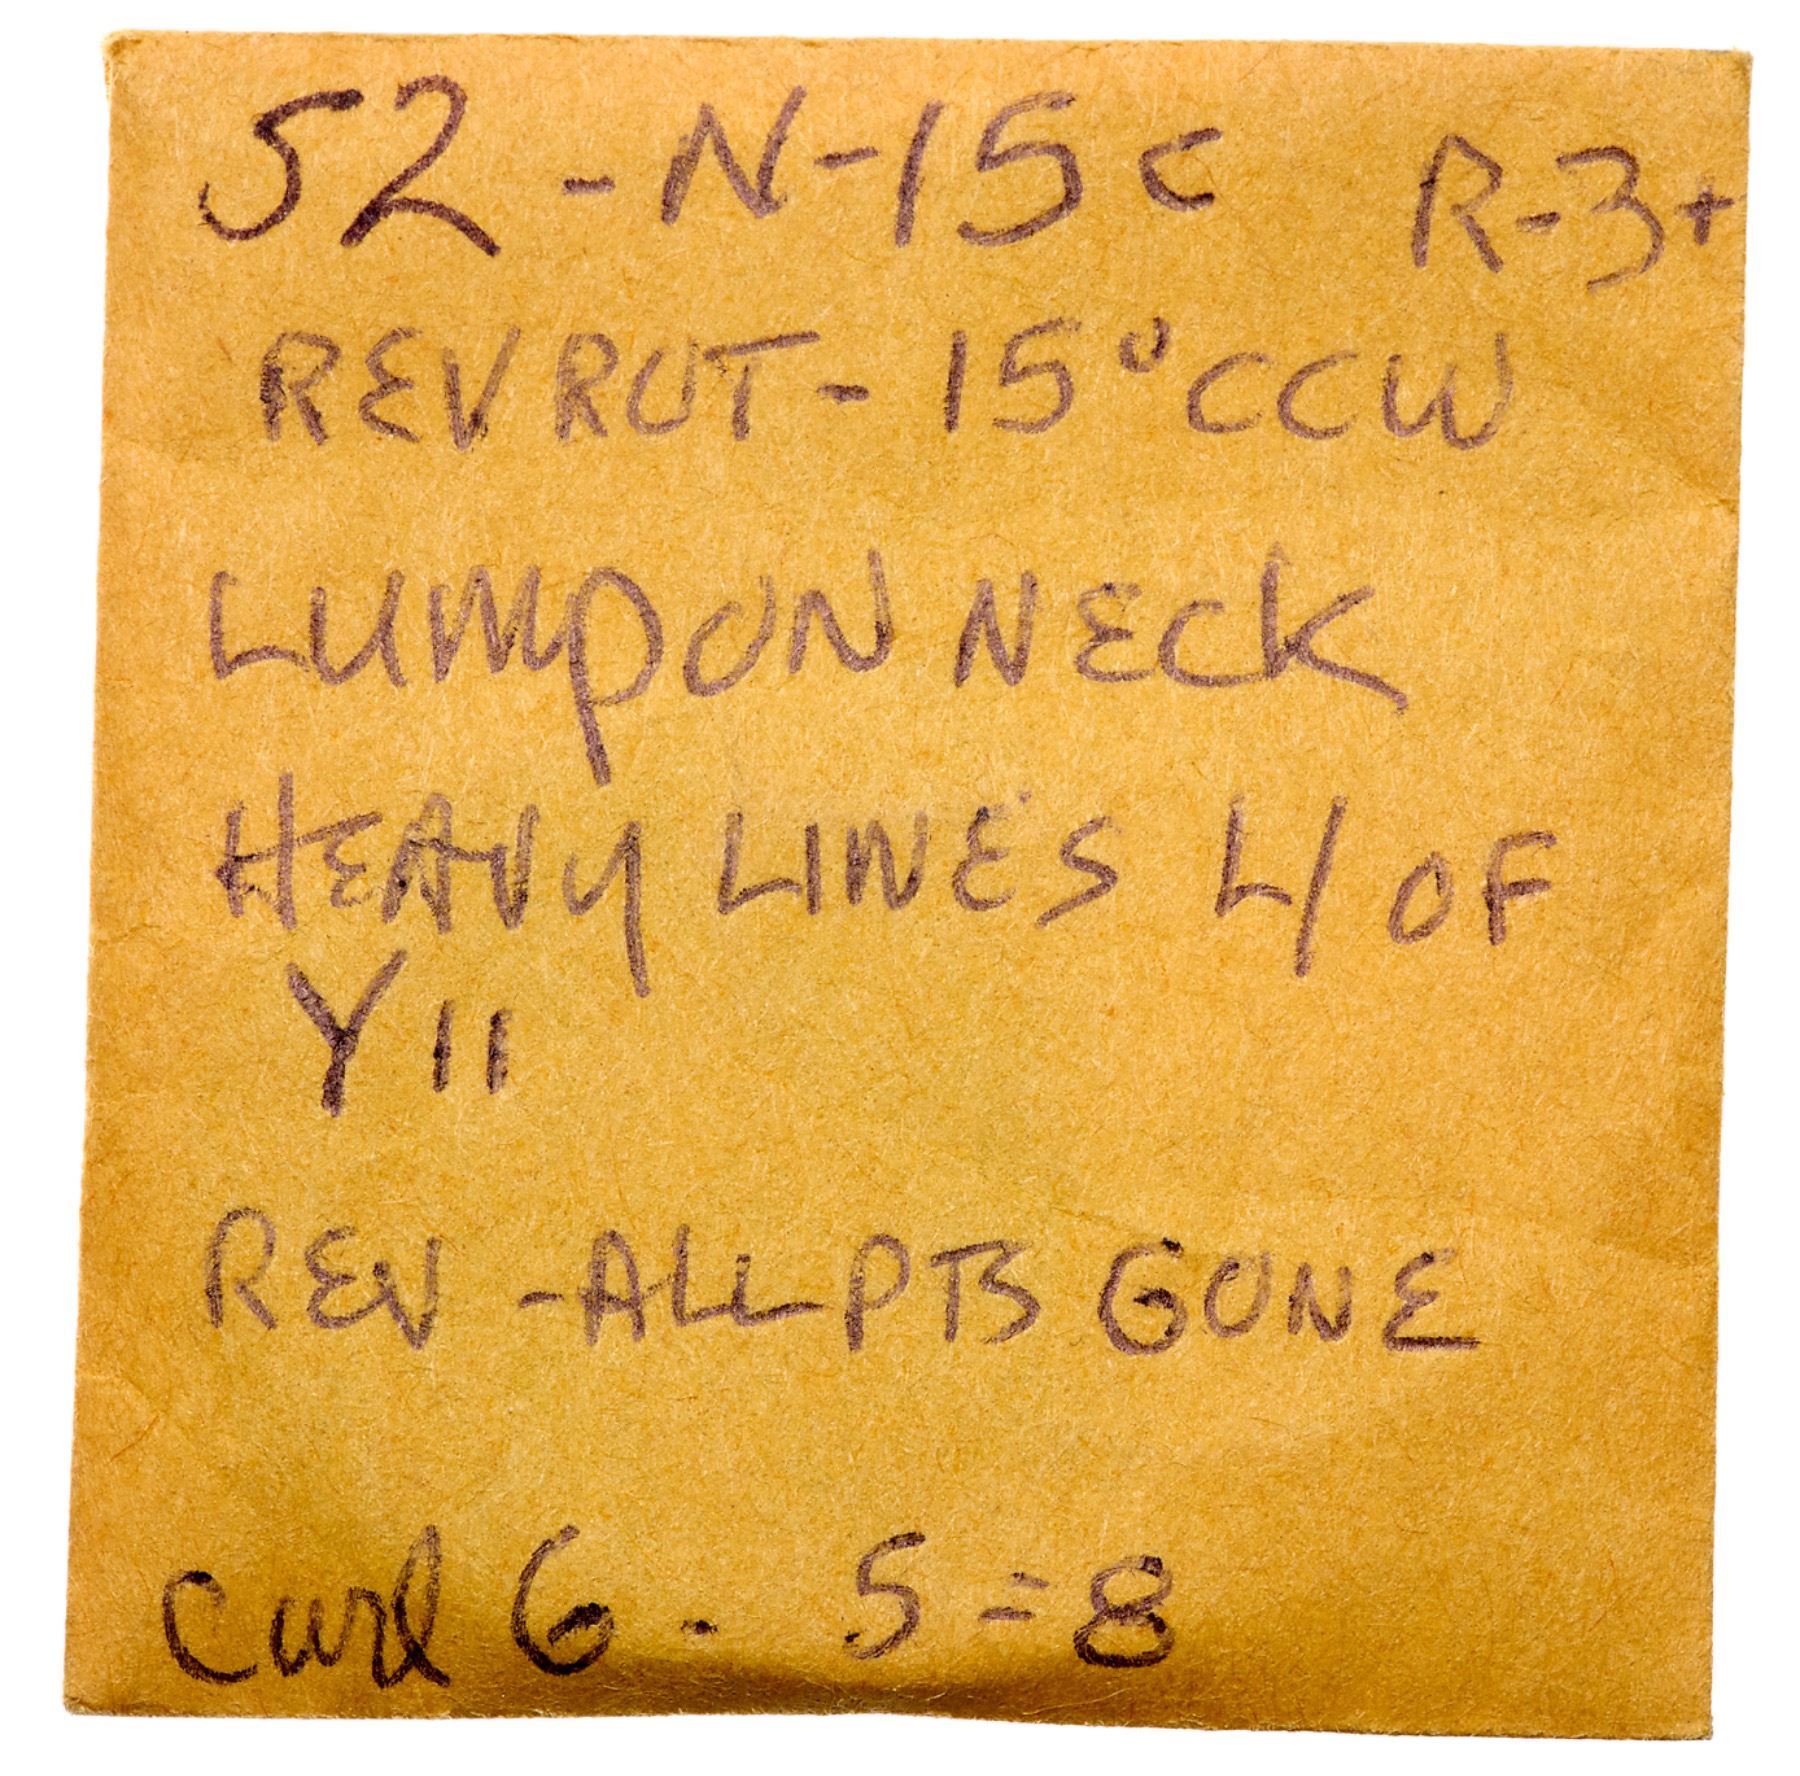 52-N-15c R-3+
REV ROT - 15° CCW
LUMP ON NECK
HEAVY LINES L/ OF
Y 11
REV - ALL PTS GONE
Curl 6. 5=8